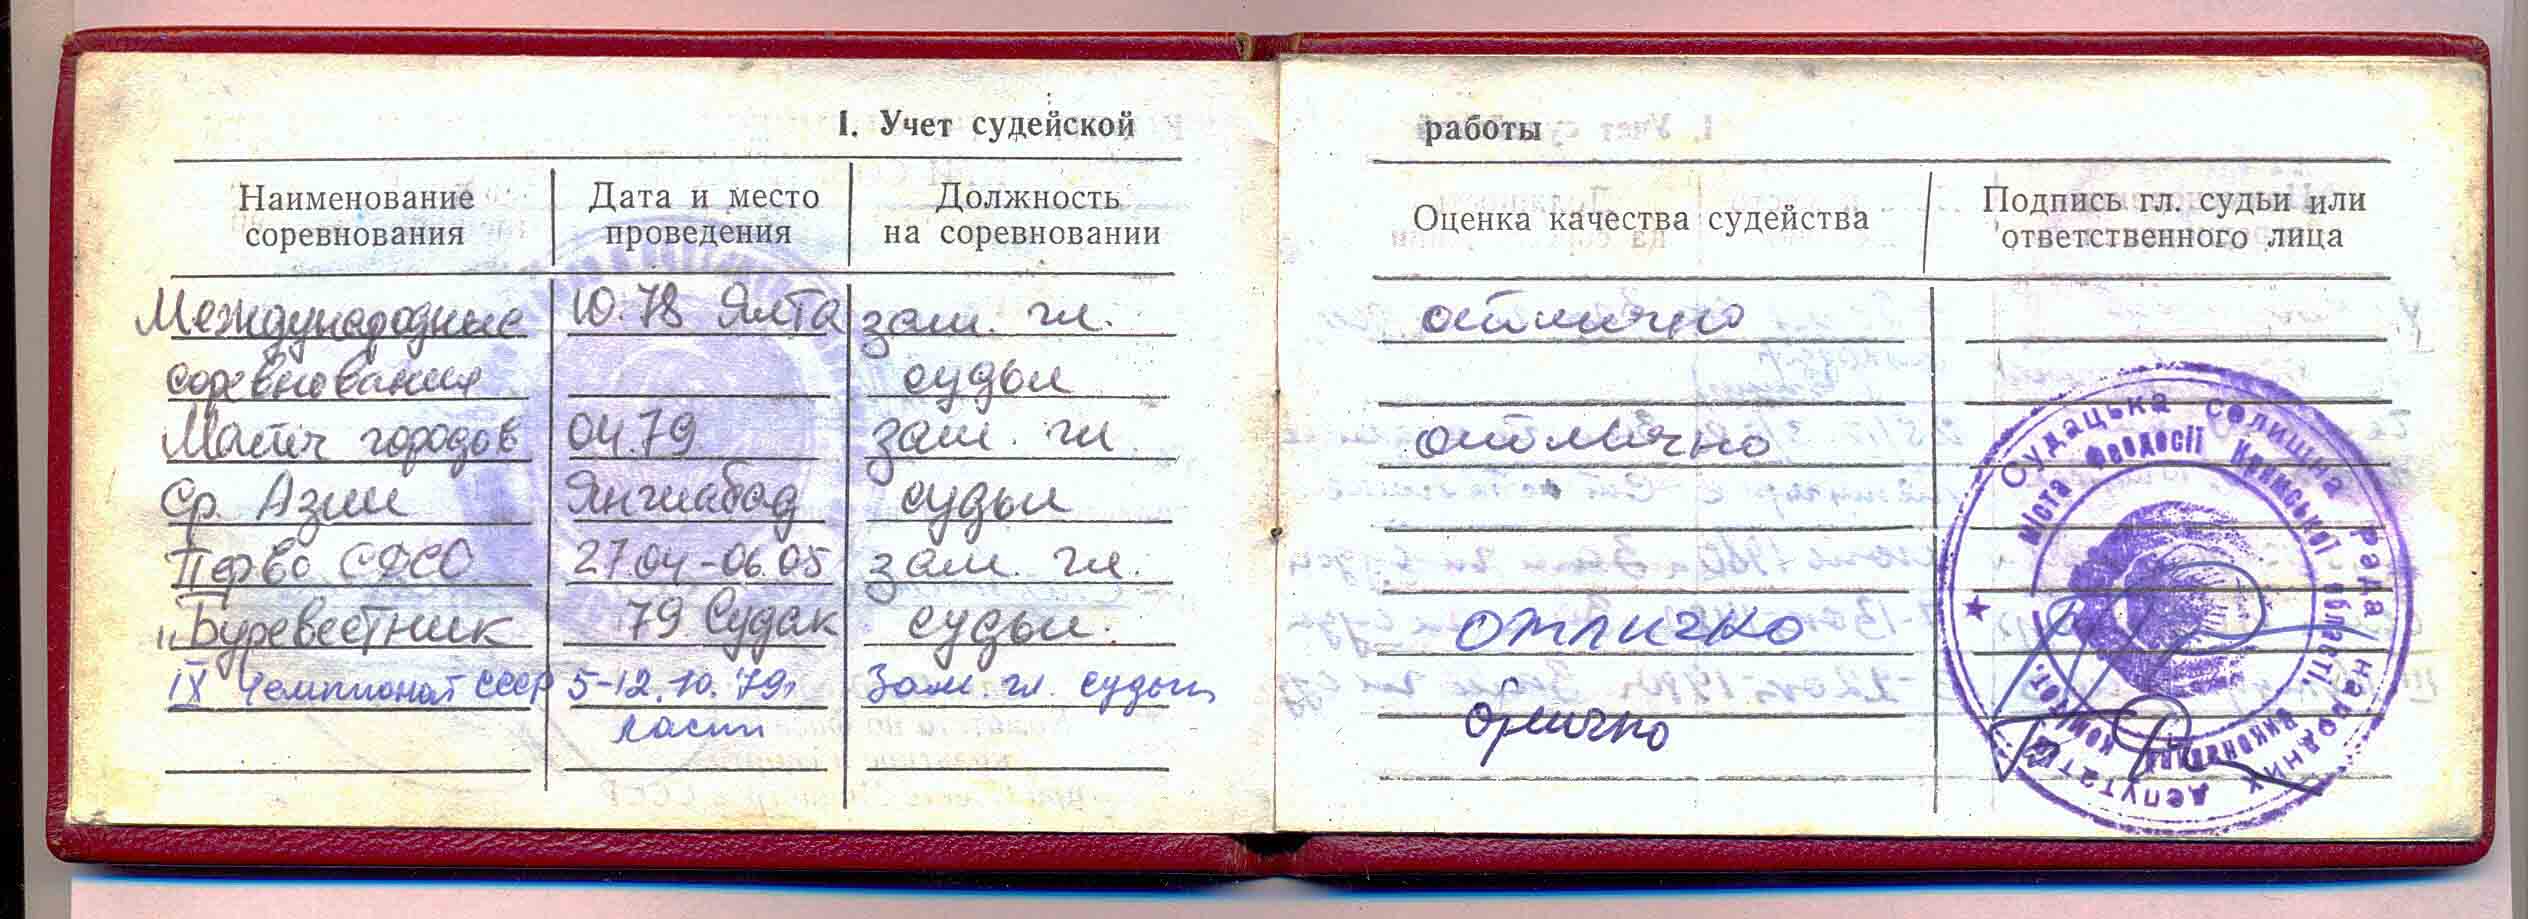 I. Учет судейской работы
Наименование соревнования
Дата и место проведения
Должность на соревновании
Оценка качества судейства
Подпись гл. судьи или ответственного лица
Международные 10.78 Ялта зам. гл. отлично
соревнования судьи
Матч городов 04.79 зам. гл. отлично
Ср. Азии Янгиабад судьи
Перво СДСО 27.04-06.05 зам. гл.
"Буревестник 79 Судак судьи. отлично
IX Чемпионат СССР 5-12.10.79г Зам. гл. судьи
Судацька селищна рада народних депутатів
міста Феодосії Кримської області.
виконавчий комітет.